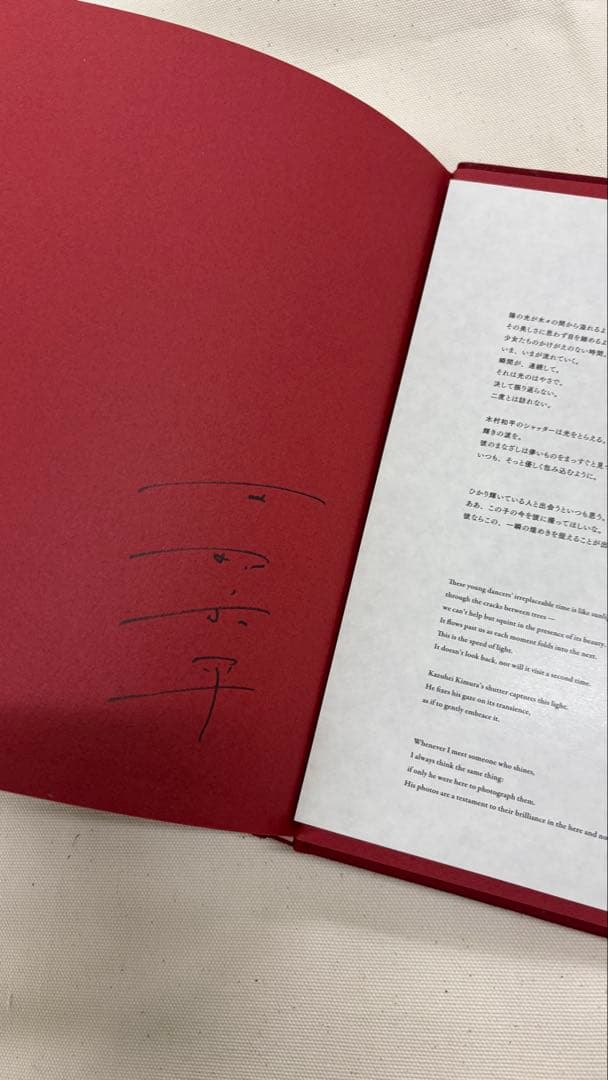 陽の光が木々の間から溢れるよ
その美しさに思わず目を細めるよ
少女たちのかけがえのない時間。
いま、いまが流れていく。
瞬間が、連続して。
それは光のはやさで。
決して振り返らない。
二度とは訪れない。
木村和平のシャッターは光をとらえる。
輝きの波を。
彼のまなざしは儚いものをまっすぐと見つ
いつも、そっと優しく包み込むように。
ひかり輝いている人と出会うといつも思う。
ああ、この子の今を彼に撮ってほしいな。
彼ならこの、一瞬の煌めきを捉えることが出
These young dancers' irreplaceable time is like sunli
through the cracks between trees —
we can't help but squint in the presence of its beauty.
It flows past us as each moment folds into the next.
This is the speed of light.
It doesn't look back, nor will it visit a second time.
Kazuhei Kimura's shutter captures this light.
He fixes his gaze on its transience,
as if to gently embrace it.
Whenever I meet someone who shines,
I always think the same thing:
if only he were here to photograph them.
His photos are a testament to their brilliance in the here and no